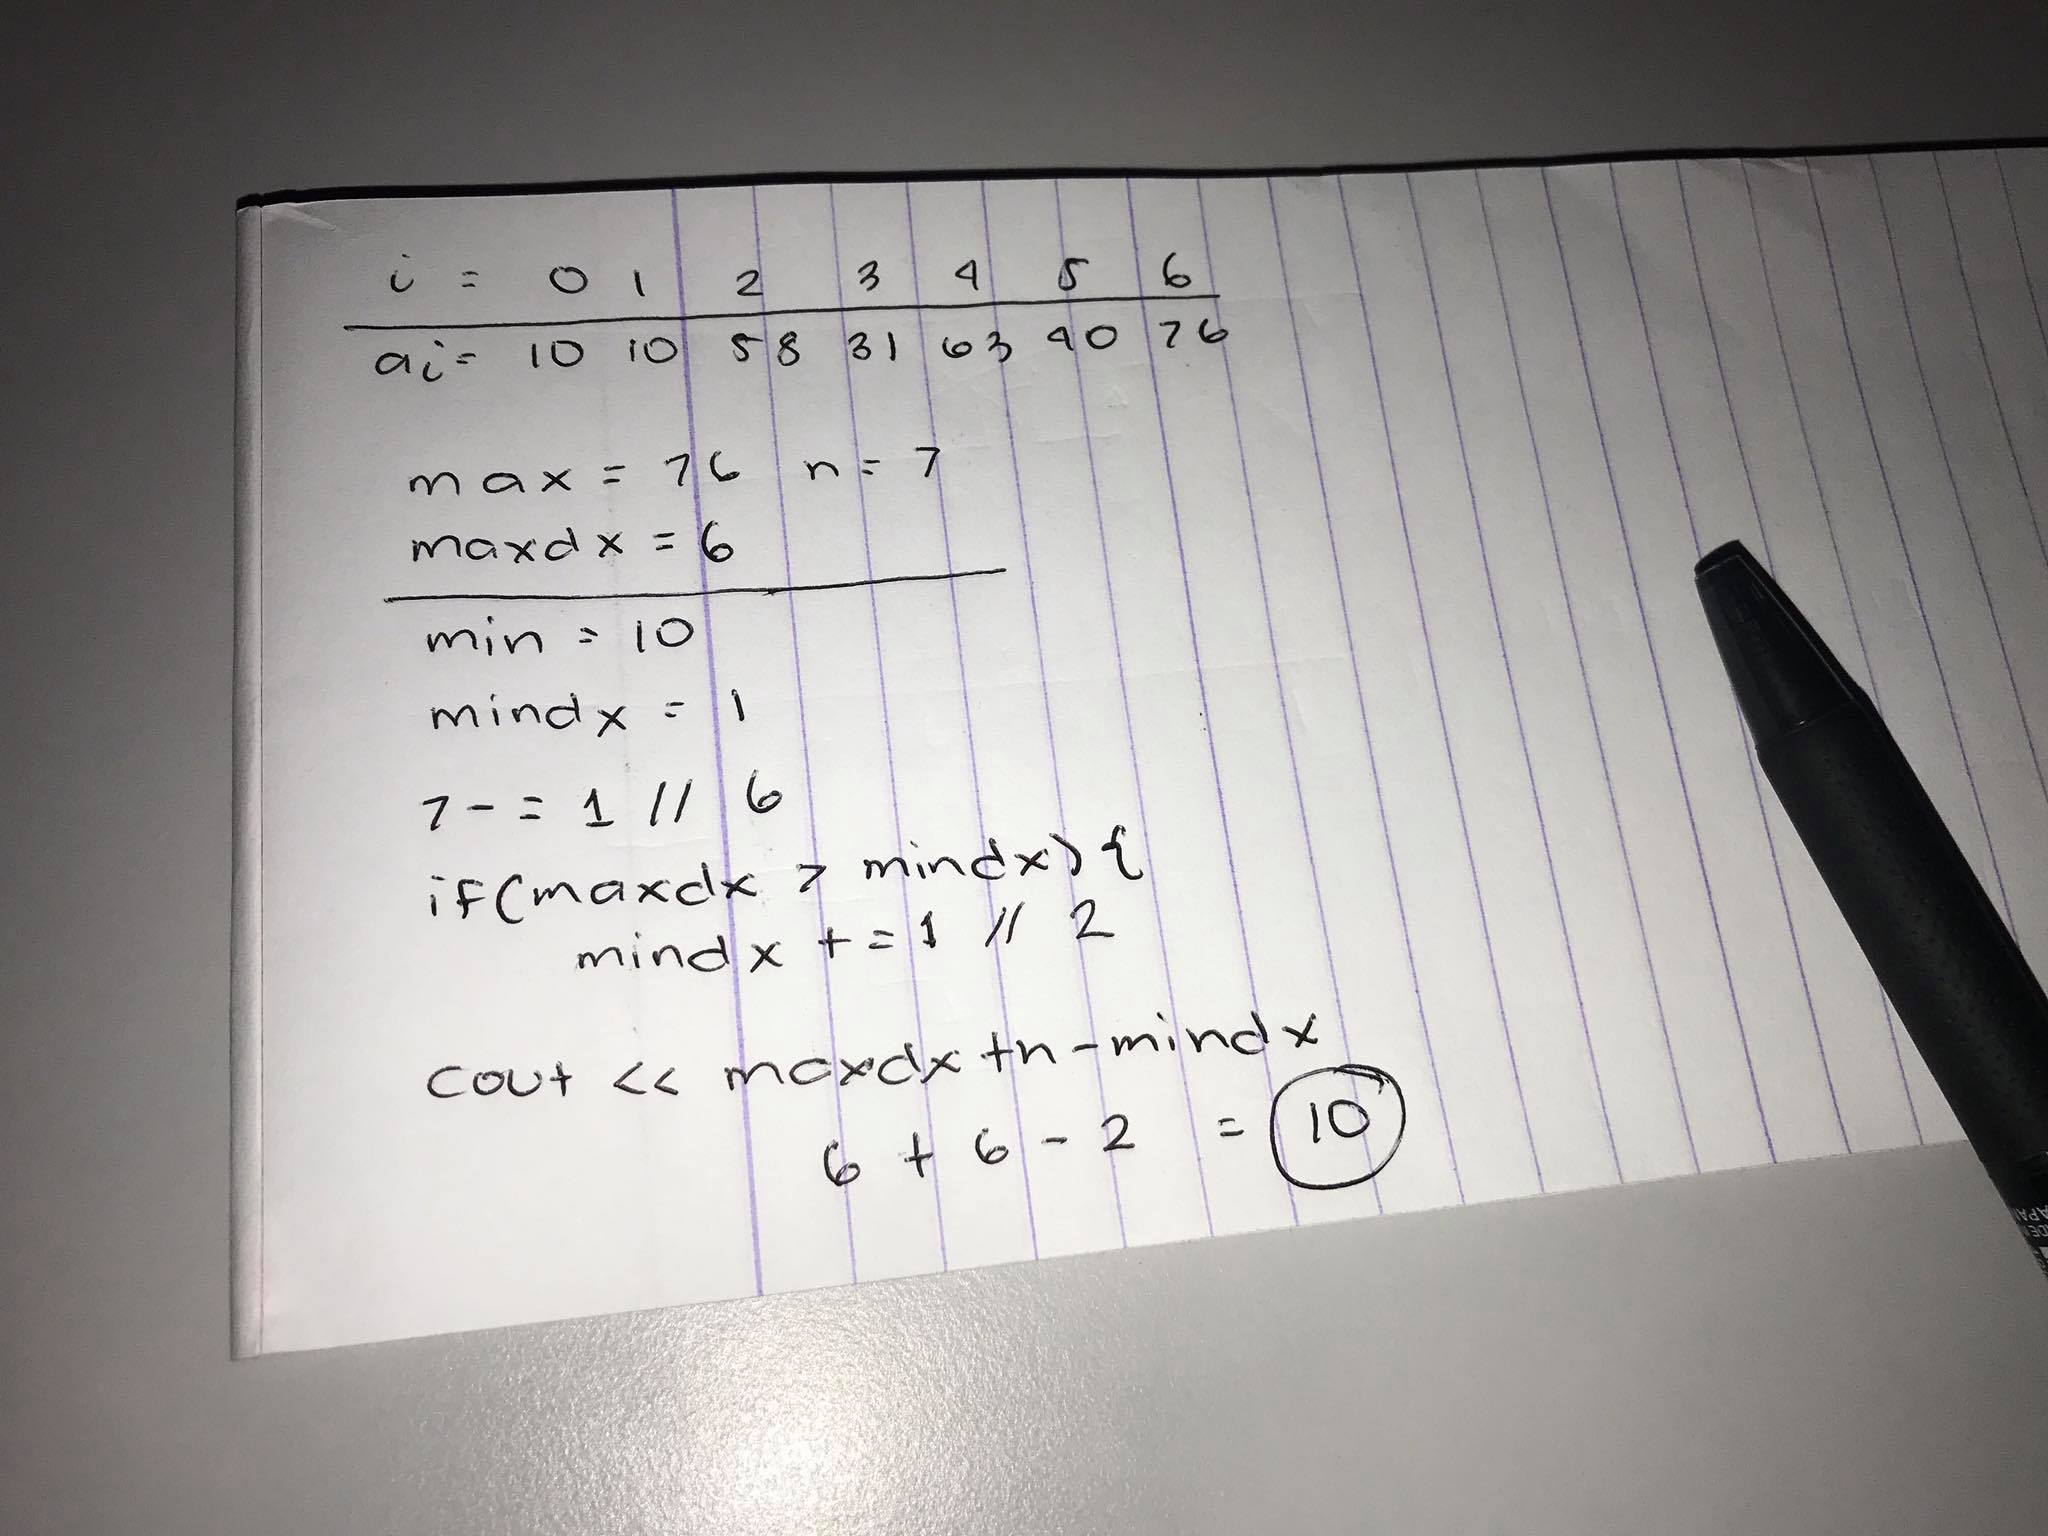 i = 0 1 2 3 4 5 6
ai= 10 10 58 31 63 40 76
max = 76 n = 7
maxdx = 6
min = 10
mindx = 1
7 - = 1 // 6
if(maxdx > mindx) {
mindx + = 1 // 2
cout << maxdx +n - mindx
6 + 6 - 2 = 10